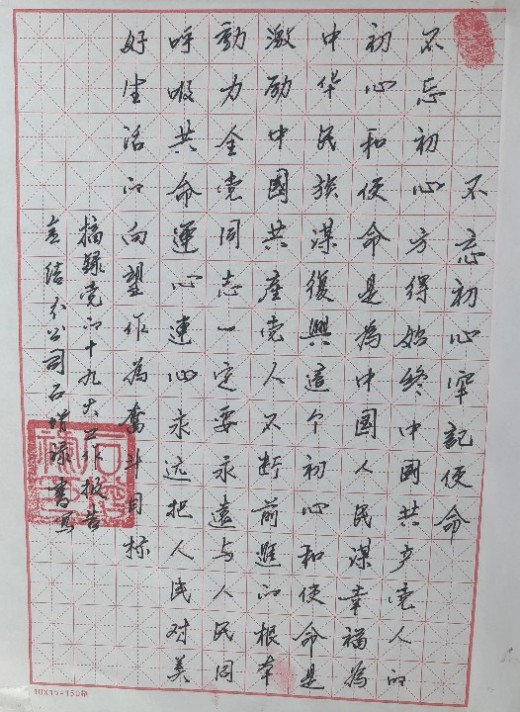 不忘初心牢記使命
不忘初心方得始终中國共产党人的
初心和使命是為中國人民谋幸福為
中华民族谋復興這个初心和使命是
激励中國共產党人不断前進的根本
動力全党同志一定要永遠与人民同
呼吸共命運心連心永远把人民对美
好生活的向望作為奮斗目标
摘録党的十九大工作报告
分公司石 書写
10×15=150格